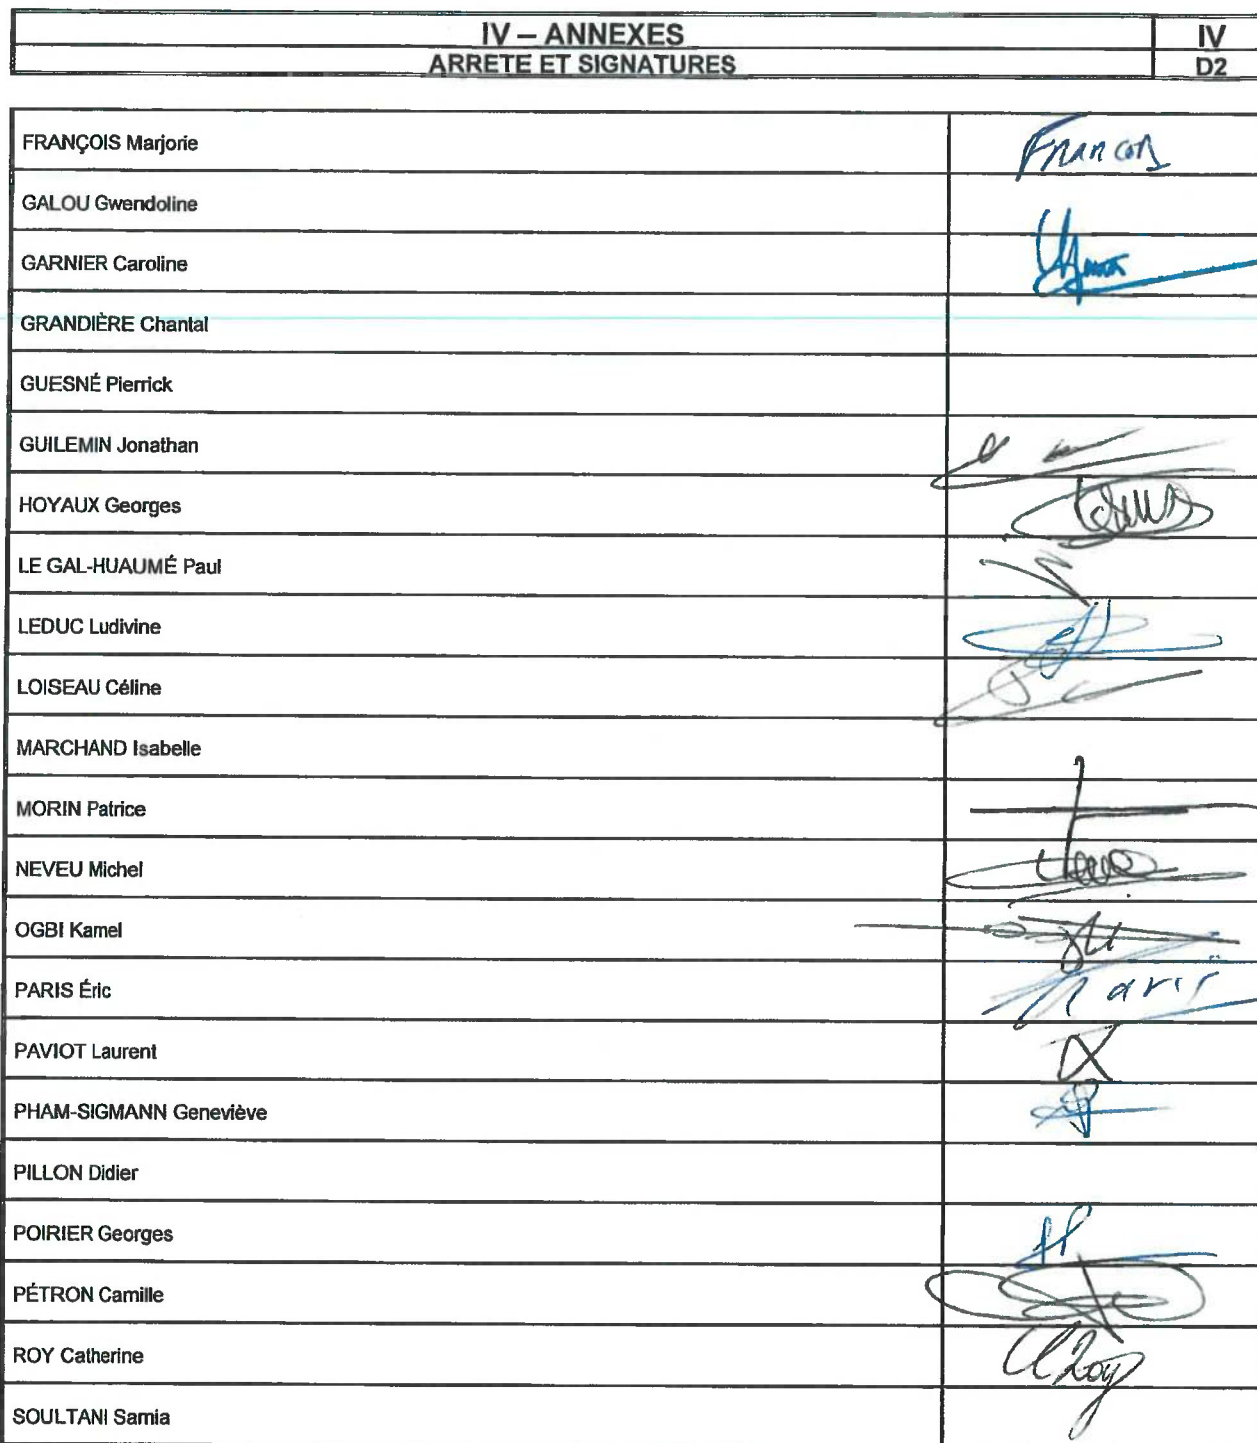 IV – ANNEXES
IV
ARRETE ET SIGNATURES
D2
FRANÇOIS Marjorie
GALOU Gwendoline
GARNIER Caroline
GRANDIÈRE Chantal
GUESNÉ Pierrick
GUILEMIN Jonathan
HOYAUX Georges
LE GAL-HUAUMÉ Paul
LEDUC Ludivine
LOISEAU Céline
MARCHAND Isabelle
MORIN Patrice
NEVEU Michel
OGBI Kamel
PARIS Éric
PAVIOT Laurent
PHAM-SIGMANN Geneviève
PILLON Didier
POIRIER Georges
PÉTRON Camille
ROY Catherine
SOULTANI Samia